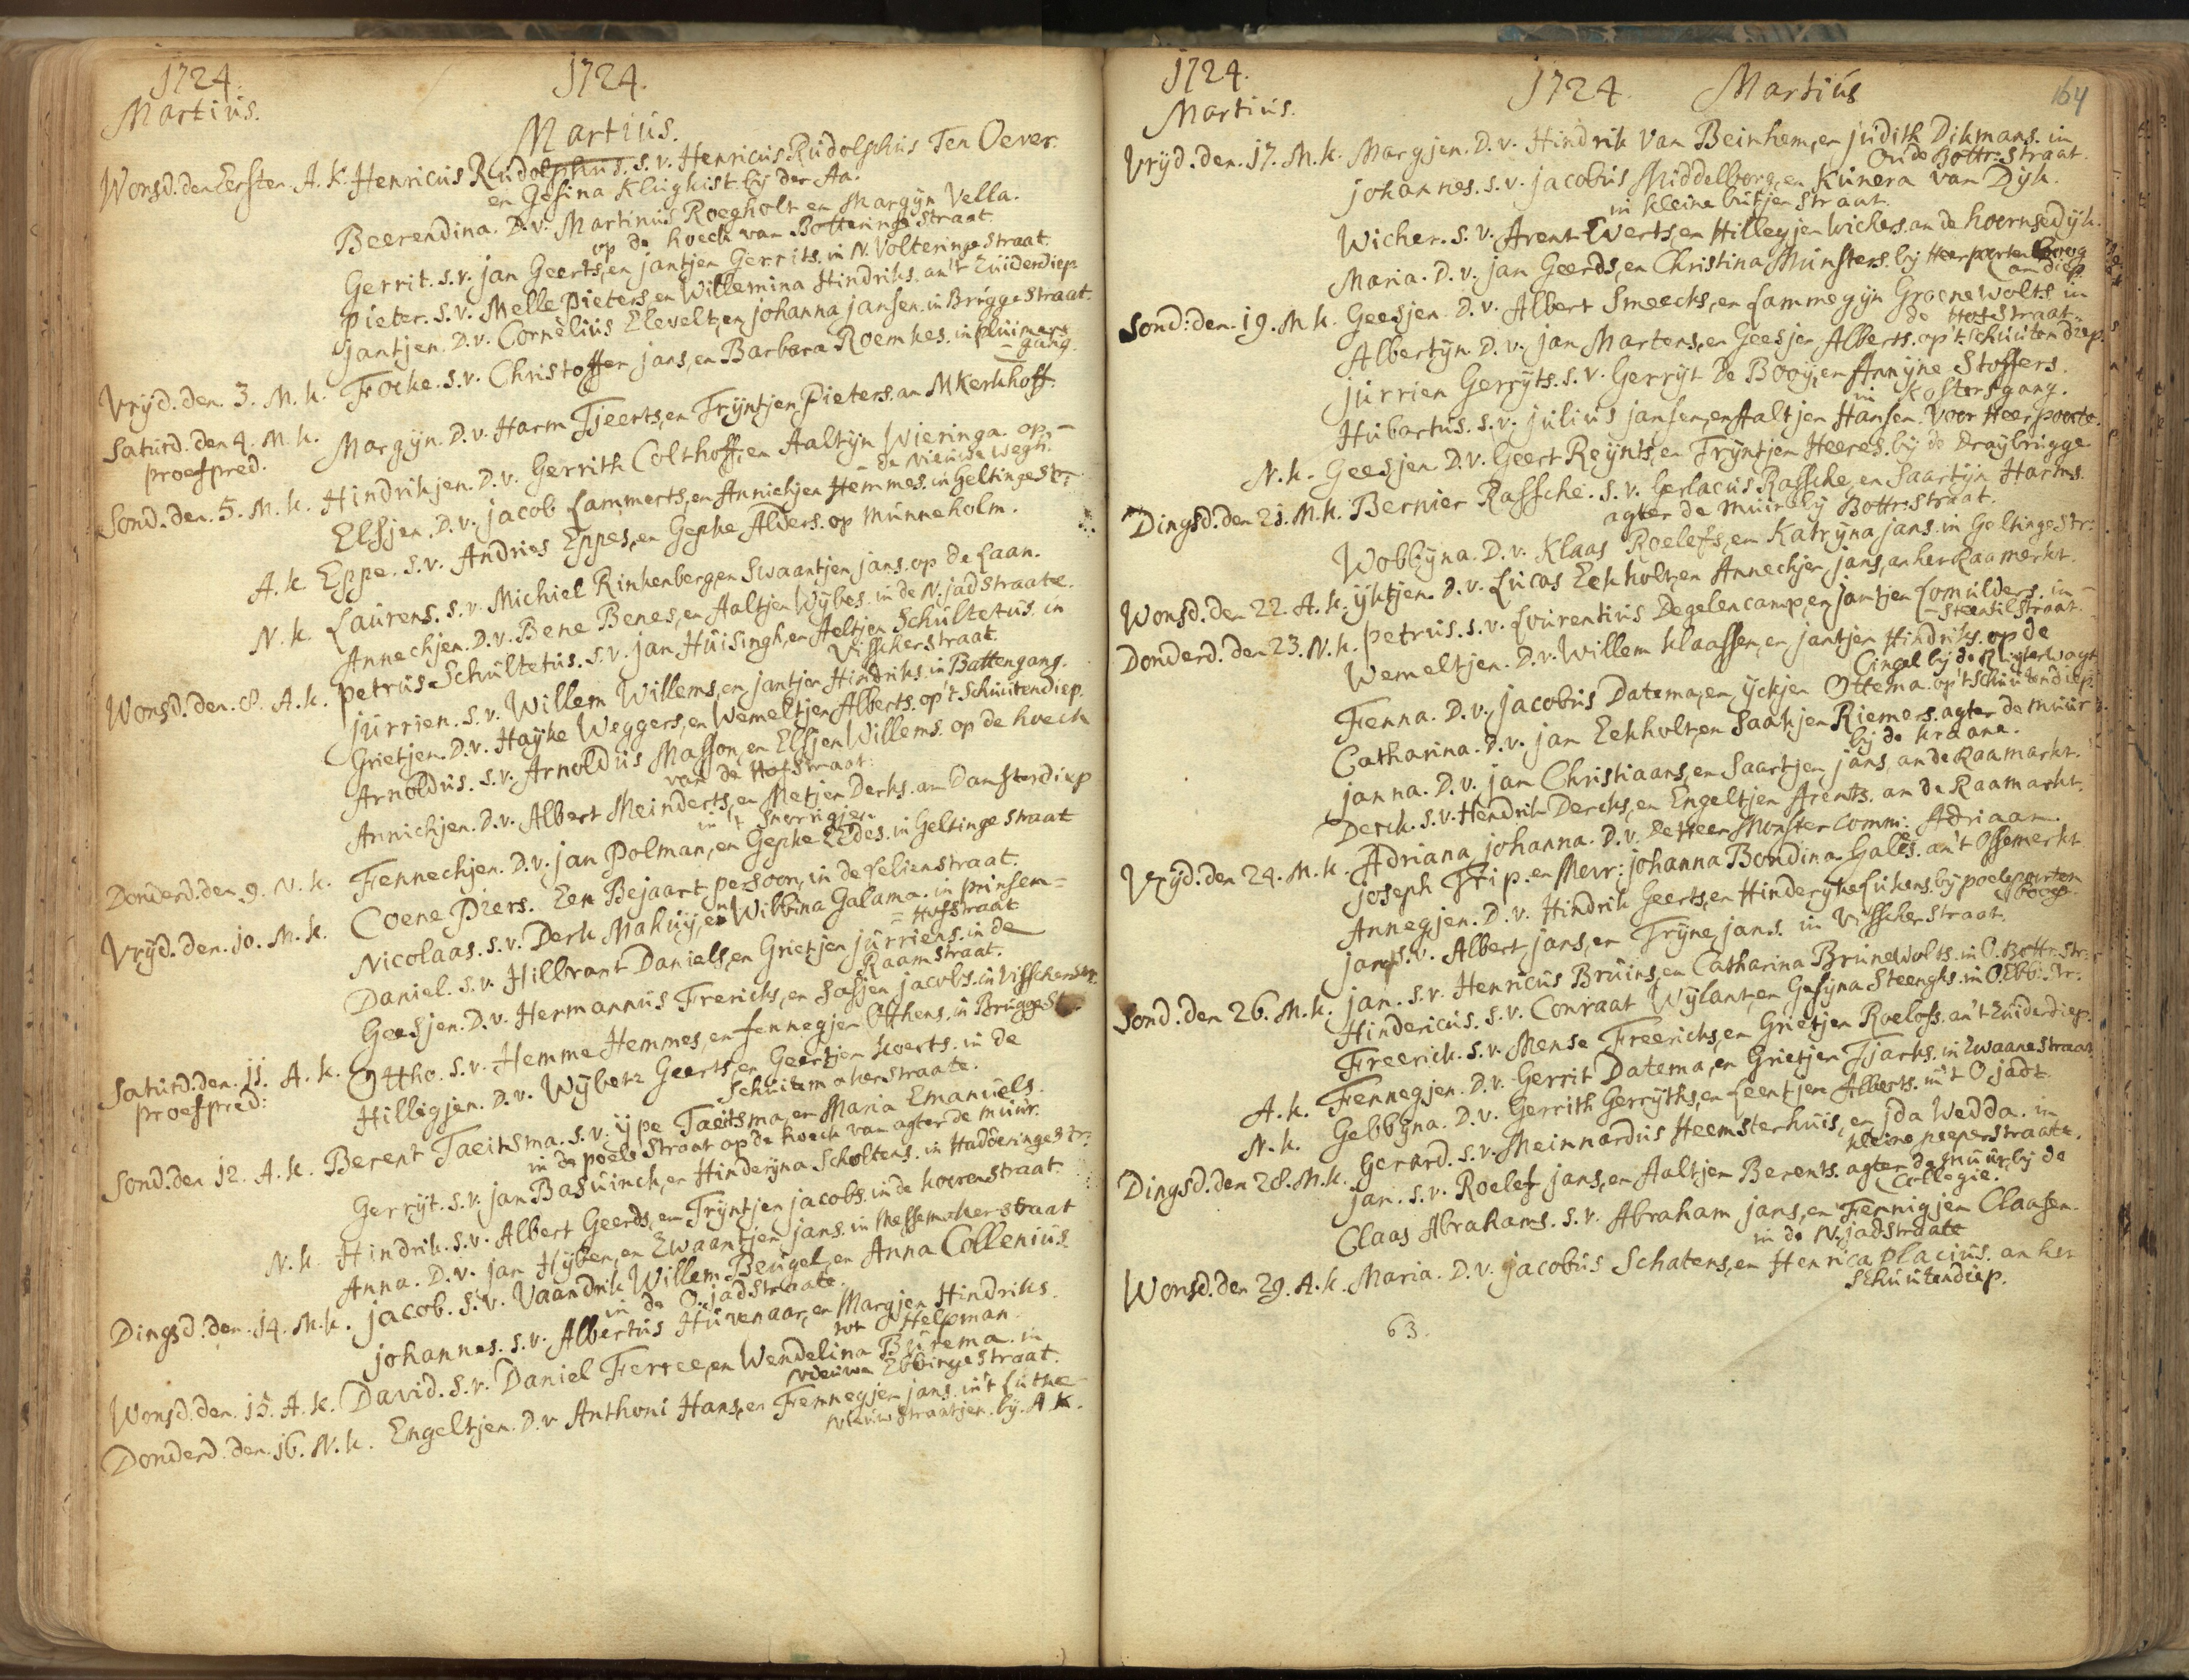 1724.
Martius.
1724.
Martius.
Wonsd. den Eersten. A. k. Henricus Rudolphus. s. v. Henricus Rudolphus Ten Oever.
en Gesina Klughist. bij der Aa.
Beerendina. D. v. Martinus Roegholt en Margijn Vella.
op de hoeck van Botteringe straat.
Gerrit. s. v. jan Geerts, en jantjen Gerrits. in N. Volteringe straat.
pieter. s. v. Melle pieters, en Willemina Hindriks. an't Zuiderdiep
jantjen. D. v. Cornelius Elevelt, en johanna jansen. in Brugge straat.
Vrijd. den. 3. M. k. Focke. s. v. Christoffer jans, en Barbara Roemkes. in pluimers
= gang.
Saturd. den 4. M. k. Margijn. D. v. Harm Tjeerts, en Trijntjen Pieters. an M Kerkhoff.
proefpred.
Sond. den. 5. M. k. Hindrikjen. D. v. Gerrith Colthoff, en Aaltijn Wieringa. op =
= de Nieuwe wegh.
Elsjen. D. v. jacob Lammerts, en Annichjen Hemmes. in Geltinge str:
A. k. Eppe. s. v. Andries Eppes, en Gepke Alders. op Munneholm.
N. k. Laurens. s. v. Michiel Rinkenberg en Swaantjen jans. op de Laan.
Annechjen. D. v. Bene Benes, en Aaltjen Wijbes. in de N. jadstraate.
Wonsd. den. 8. A. k. petrus Schultetus. s. v. jan Huisingh, en Aeltjen Schultetus. in
Visscherstraat.
jurrien. s. v. Willem Willems, en jantjen Hindriks. in Battengang.
Grietjen. D. v. Hayke Weggers, en Wemeltjen Alberts. op't Schuitendiep.
Arnoldus. s. v. Arnoldus Masson, en Elsjen Willems. op de hoeck
van de Hofstraat.
Annichjen. D. v. Albert Meinderts, en Metjen Derks. an Damsterdiep
in 't Snorrigjen.
Donderd. den 9. N. k. Fennechjen. D. v. jan Polman, en Gepke Eedes. in Geltinge straat
Vrijd. den. 10. M. k. Coene Piers. Een Bejaart persoon, in de Lelienstraat.
Nicolaas. s. v. Derk Makuij, en Wibbina Galama. in prinsen=
= Hofstraat
Daniel. s. v. Hillbrant Daniels, en Grietjen jurriens. in de
Raamstraat.
Geesjen. D. v. Hermannus Frericks, en Sasjen jacobs. in Visscherstr.
Saturd. den. 11. A. k. Ottho. s. v. Hemme Hemmes, en fennegjen Otthens. in Brugge St
proefpred:
Hilligjen. D. v. Wijbert Geerts, en Geertjen koerts. in de
Schuitemakerstraate.
Sond. den 12. A. k. Berent Taeitsma. s. v. ijpe Taeitsma, en Maria Emanuels.
in de poele Straat op de hoeck van agter de muur.
Gerrijt. s. v. jan Basuinck, en Hinderijna Scholtens. in Hadderinge str:
N. k. Hindrik. s. v. Albert Geerds, en Trijntjen jacobs. in de hoerenstraat.
Anna. D. v. jan Hijben, en Zwaantjen jans. in Messemakerstraat
Dingsd. den. 14. M. k. jacob. s. v. Vaandrik Willem Beugel, en Anna Collenius.
in de O. jadstraate.
johannes. s. v. Albertus Huvenaar, en Margjen Hindriks.
tot Helpman.
Wonsd. den. 15. A. k. David. s. v. Daniel Ferree, en Wendelina Burema. in
Nieuwe Ebbinge Straat.
Donderd. den. 16. N. k. Engeltjen. D. v. Anthoni Hans, en Fennegjen jans. in't Lutke
Nieuwstraatjen. bij. A k.
1724.
Martius.
1724. Martius
164
Vrijd. den. 17. M. k. Margjen. D. v. Hindrik Van Beinhem, en judith Dikmans. in
Oude Bottr: straat.
johannes. s. v. jacobus Middelborg, en Kunera van Dijk.
in kleine butjen straat.
Wicher. s. v. Arent Everts, en Hillegjen wichers. an de hoornsedijk.
Maria. D. v. jan Geerds, en Christina Munsters. bij Heerporten boog
am diep.
Sond: den. 19. M k. Geesjen. D. v. Albert Smeecks, en Lammegijn Groenewolts. in
de Hofstraat.
Albertijn. D. v. jan Martens, en Geesjen Alberts. op't Schuiten diep.
jurrien Gerrijts. s. v. Gerrijt De Booij, en Annijne Stoffers.
in kostersgang.
Hubartus. s. v. julius jansen, en Aaltjen Hansen. Voor Heerpoorte.
N. k. Geesjen. D. v. Geert Reijnts, en Trijntjen Heeres. bij de Draijbrugge
Dingsd. den 21. M. k. Bernier Rassche. s. v. Gerlacus Rassche, en Saartijn Harms.
agter de muir bij Bottr: straat.
Wobbijna. D. v. Klaas Roelefs, en Katrijna jans. in Geltinge str:
Wonsd. den 22. A. k. ijktjen. D. v. Lucas Eekholt, en Annechjen jans, an het Raamerkt.
Donderd. den 23. N. k. petrus. s. v. Lourentius Degelencamp, en jantjen Lomulders. in =
= Steentilstraat.
Wemeltjen. D. v. Willem klaassen, en jantjen Hindriks. op de
Cingel bij de Ruiterwagt
Fenna. D. v. jacobus Datema, en ijckjen Ottema. op 't Schuitendiep.
Catharina. D. v. jan Eekholt, en Saakjen Riemers. agter de muur
bij de kraane.
janna. D. v. jan Christiaans, en Saartjen jans, an de Raamarkt.
Derck. s. v. Hendrik Dercks, en Engeltjen Arents. an de Raamarkt.
Vrijd. den 24. M. k. Adriana johanna. D. v. De Heer Monster Comm: Adriaan.
joseph Trip. en Mevr: johanna Bondina Gales. an't Ossemerkt
Annegjen. D. v. Hindrik Geerts, en Hinderijke Lukens. bij poeleporten
boog.
jan s. v. Albert jans, en Trijne jans. in Visscherstraat.
Sond. den 26. M. k. jan. s. v. Henricus Bruins, en Catharina Brunewolts. in O. Bottr. str:
Hindericus. s. v. Conraat Wijlant, en Gesijna Steenghs. in O. Ebb: str:
Freerick. s. v. Mense Freericks, en Grietjen Roelofs. an't Zuiderdiep.
A. k. Fennegjen. D. v. Gerrit Datema, en Grietjen Tjarks. in Zwaanestraat
N. k. Gebbijna. D. v. Gerrith Gerrijths, en Leentjen Alberts. in't O. jadt.
Dingsd. den 28. M. k. Gerard. s. v. Meinnardus Heemsterhuis, en jda Wedda. in
kleine peeperstraate.
jan. s. v. Roelef jans, en Aaltjen Berents. agter de muur, bij de
Collegie.
Claas Abrahams. s. v. Abraham jans, en Fennigjen Claasen.
in de N. jadstraate
Wonsd. den 29. A. k. Maria. D. v. jacobus Schatens, en Henrica placius. an het
Schuitendiep.
63.